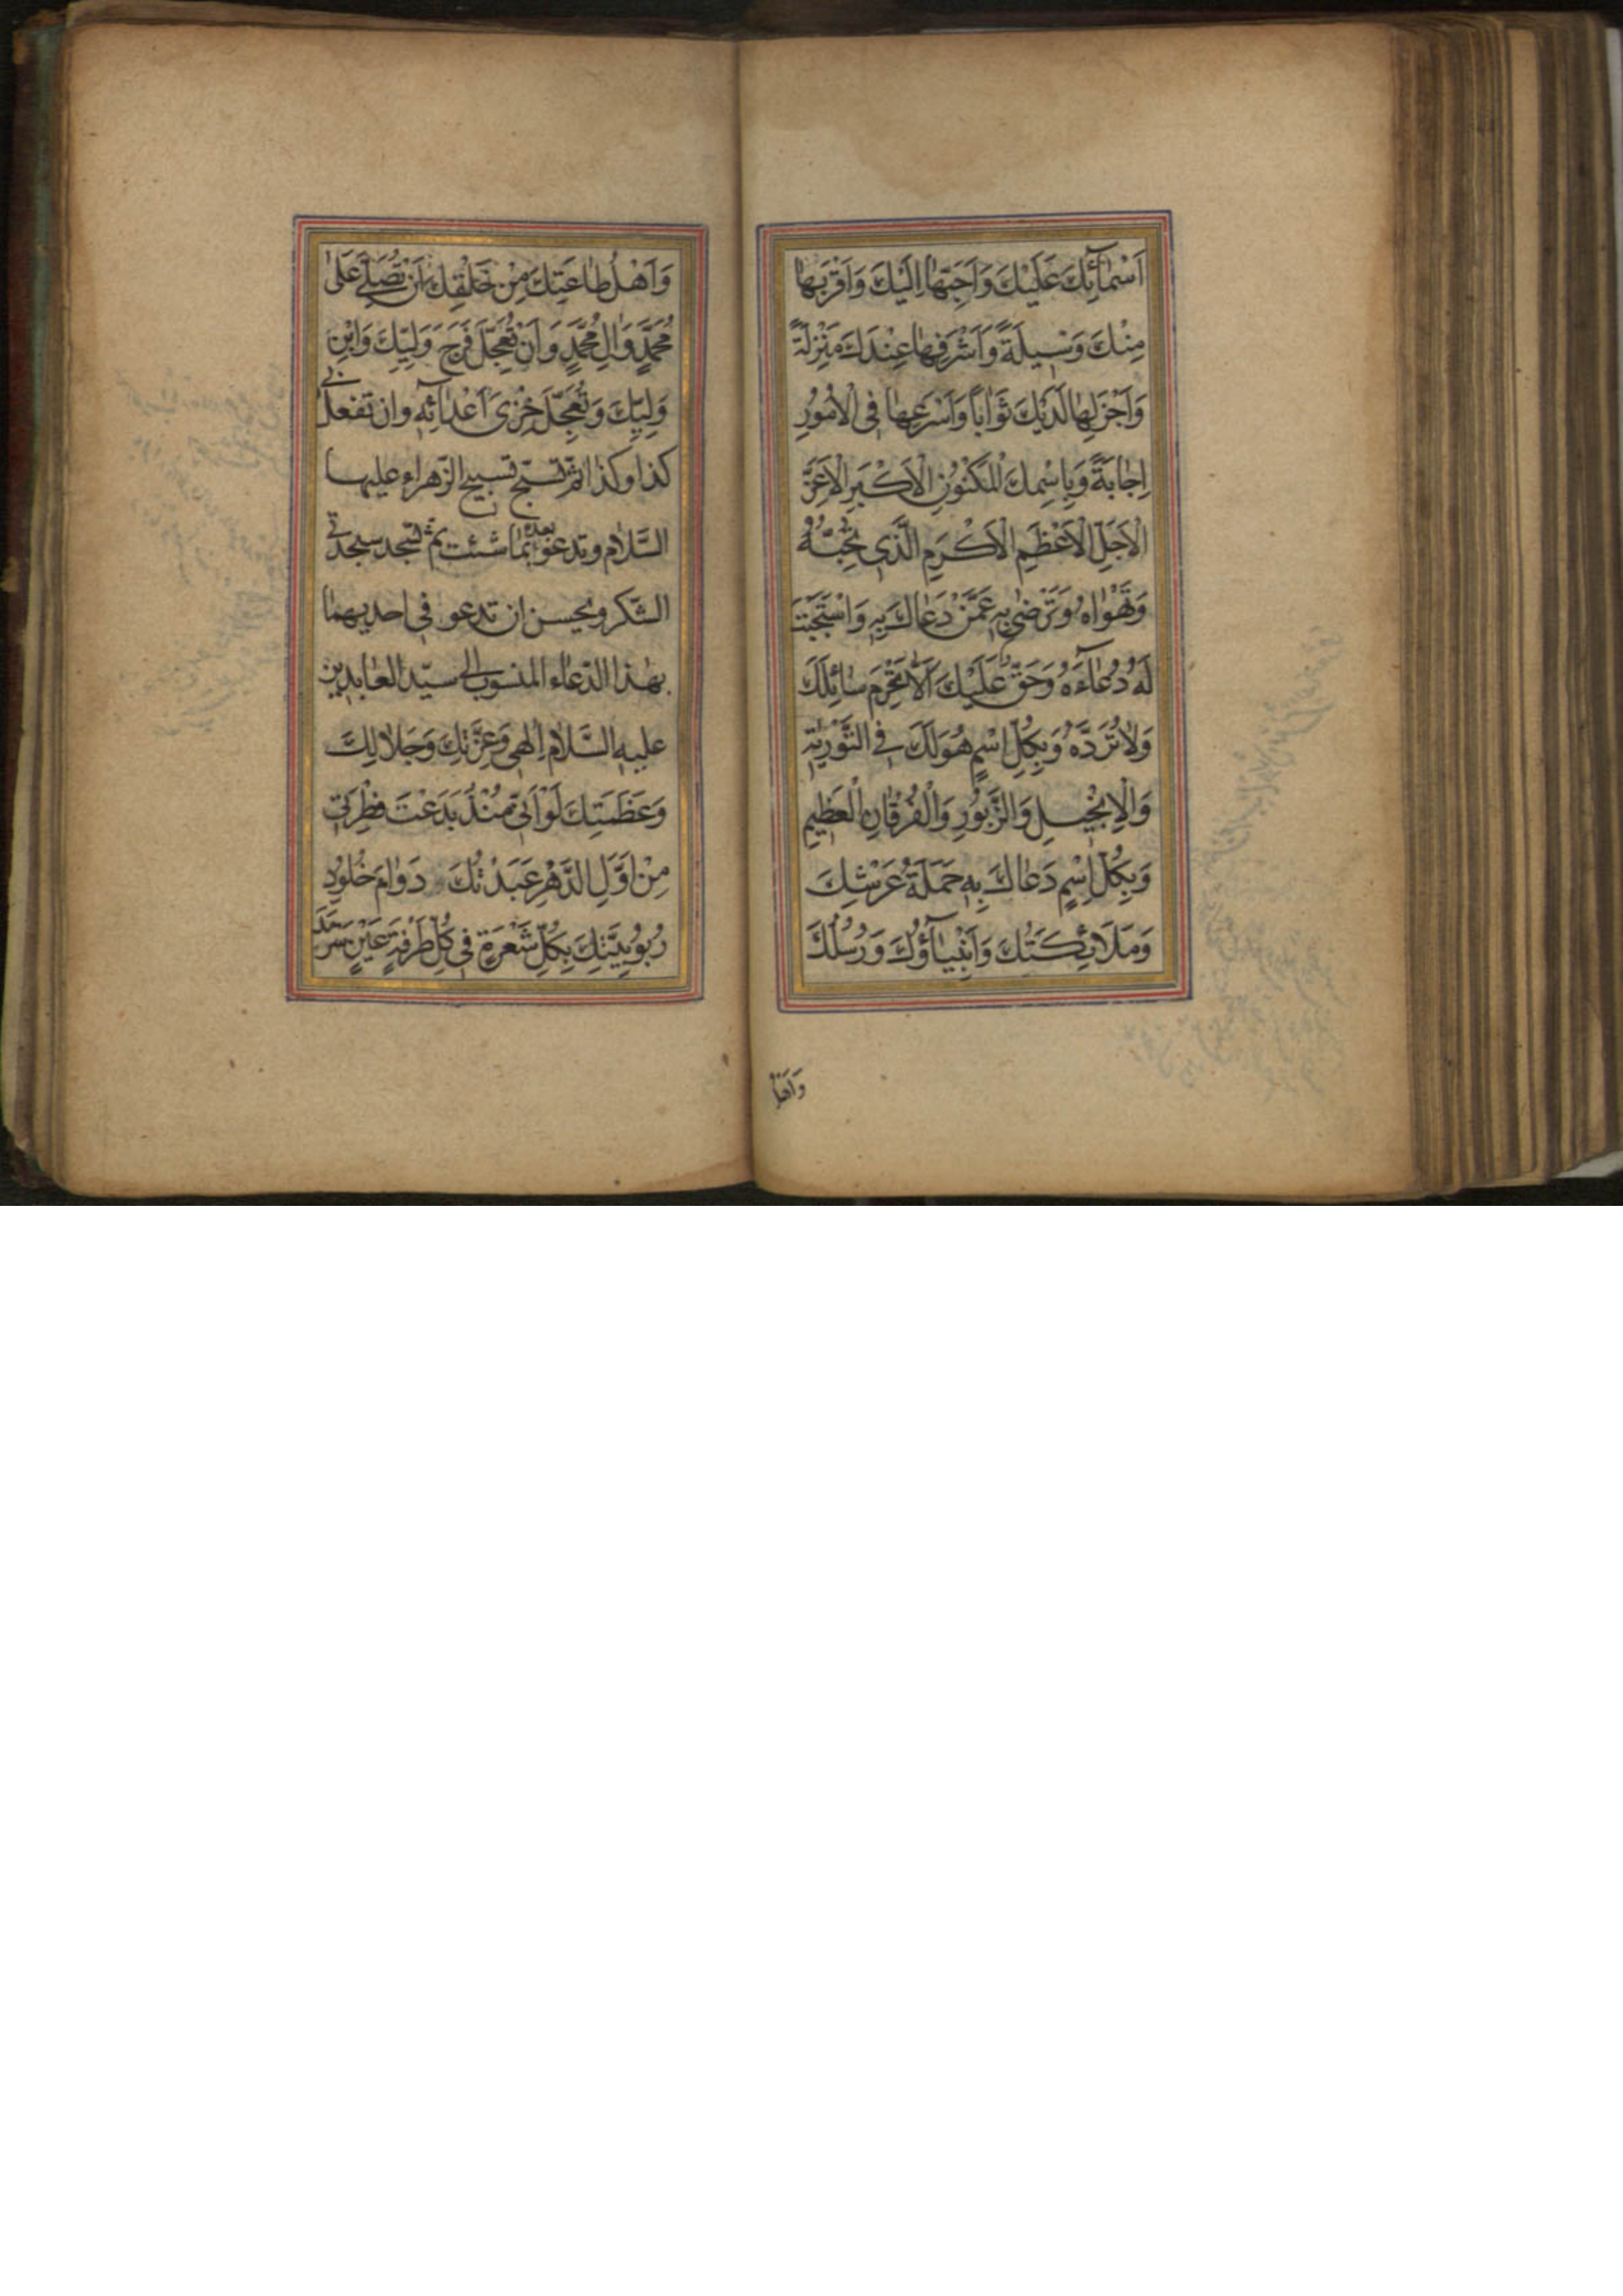 اَسْمٰآئِكَ عَلَيْكَ وَاَحَبِّهٰا اِلَيْكَ وَاَقْرَبِهٰا
مِنْكَ وَسِيلَةً وَاَشْرَفِهٰا عِنْدَكَ مَنْزِلَةً
وَاَجْزَلِهٰا لَدَيْكَ ثَوٰابًا وَاَسْرَعِهٰا فِى الْاُمُورِ
اِجٰابَةً وَبِاسْمِكَ الْمَكْنُونِ الْاَكْبَرِ الْاَعَزِّ
الْاَجَلِّ الْاَعْظَمِ الْاَكْرَمِ الَّذِى تُحِبُّهُ
وَتَهْوٰاهُ وَتَرْضٰى بِهِ عَمَّنْ دَعٰاكَ بِهِ وَاسْتَجَبْتَ
لَهُ دُعٰآءَهُ وَحَقٌّ عَلَيْكَ اَلّٰا تَحْرِمَ سٰائِلَكَ
وَلٰا تَرُدَّهُ وَبِكُلِّ اسْمٍ هُوَ لَكَ فِى التَّوْرٰيةِ
وَالْاِنْجِيلِ وَالزَّبُورِ وَالْفُرْقٰانِ الْعَظِيمِ
وَبِكُلِّ اسْمٍ دَعٰاكَ بِهِ حَمَلَةُ عَرْشِكَ
وَمَلَائِكَتُكَ وَاَنْبِيٰآؤُكَ وَرُسُلُكَ
وَاَهْلُ
وَاَهْلُ طٰاعَتِكَ مِنْ خَلْقِكَ اَنْ تُصَلِّىَ عَلىٰ
مُحَمَّدٍ وَاٰلِ مُحَمَّدٍ وَاَنْ تُعَجِّلَ فَرَجَ وَلِيِّكَ وَابْنِ
وَلِيِّكَ وَتُعَجِّلَ خِزْىَ اَعْدٰآئِهِ وان تفعل بى
كذا وكذا ثمّ تسبّح تسبيح الزّهراء عليها
السَّلٰام وتدعو بعده بمٰا شئت ثمّ تسجد سجدتى
الشّكر ويحسن ان تدعو فى احديهمٰا
بهٰذا الدّعٰاء المنسوب الى سيّد العٰابدين
عليه السَّلٰام اِلٰهِى وَعِزَّتِكَ وَجَلٰالِكَ
وَعَظَمَتِكَ لَوْ اَنِّى مُنْذُ بَدَعْتَ فِطْرَتِى
مِنْ اَوَّلِ الدَّهْرِ عَبَدْتُكَ دَوٰامَ خُلُودِ
رُبُوبِيَّتِكَ بِكُلِّ شَعْرَةٍ فِى كُلِّ طَرْفَةِ عَيْنٍ سَرْمَدَ